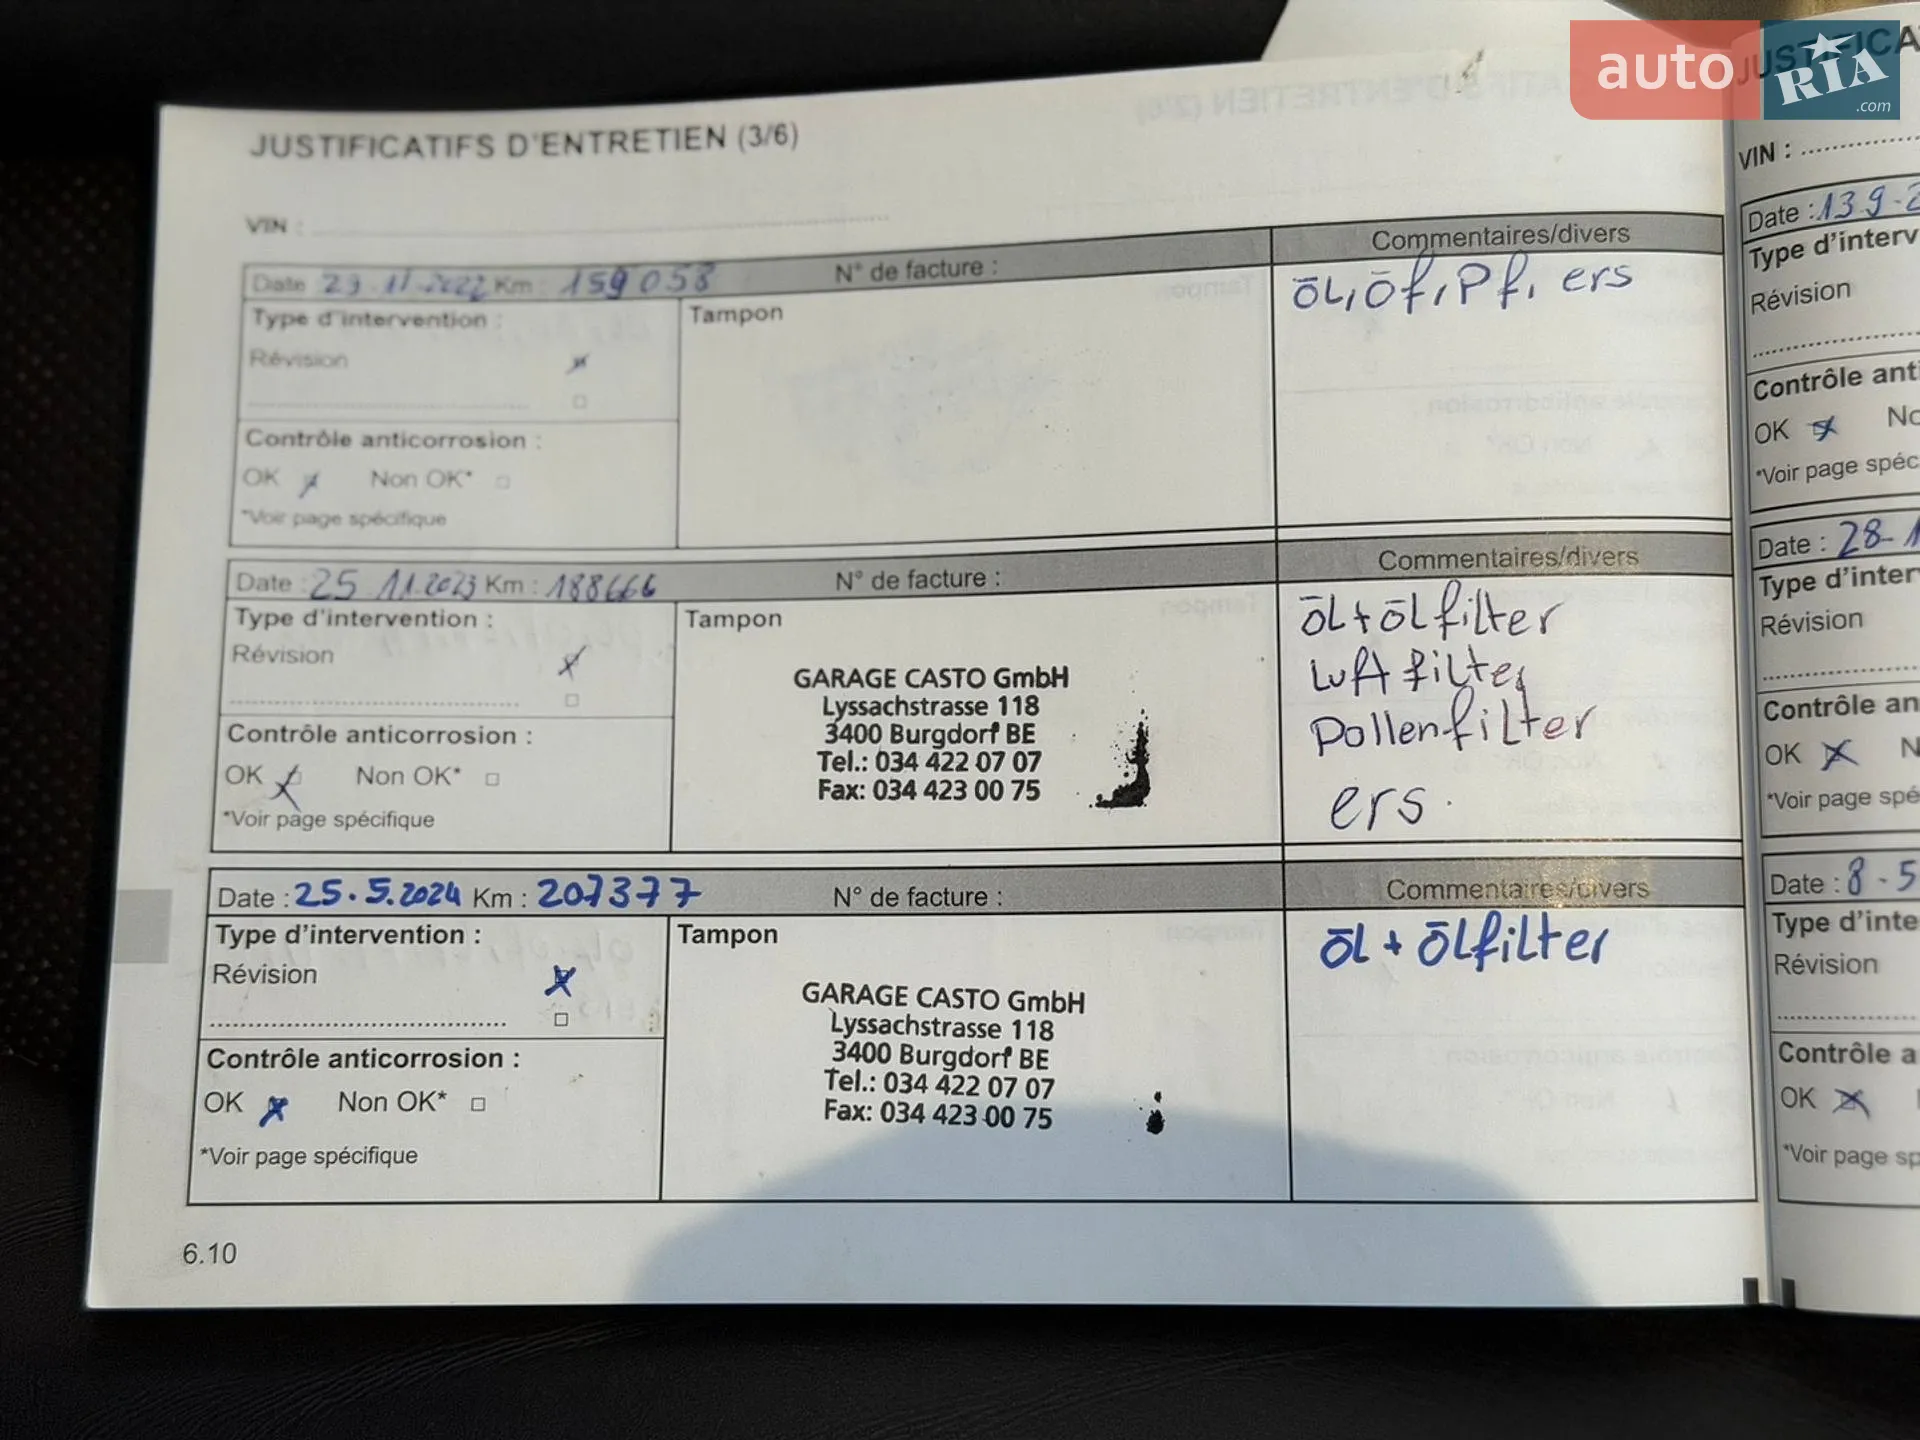 auto RIA .com
JUSTIFICATIFS D'ENTRETIEN (3/6)
VIN :
Date 23.11.2022 Km : 159 058 N° de facture : Commentaires/divers
Type d'intervention :
Révision
Tampon
ōL, ōf, Pf, ers
Contrôle anticorrosion :
OK Non OK*
*Voir page spécifique
Date : 25.11.2023 Km : 188666 N° de facture : Commentaires/divers
Type d'intervention :
Révision
Tampon
GARAGE CASTO GmbH
Lyssachstrasse 118
3400 Burgdorf BE
Tel.: 034 422 07 07
Fax: 034 423 00 75
ōL + ōLfilter
Luftfilter
Pollenfilter
ers.
Contrôle anticorrosion :
OK Non OK*
*Voir page spécifique
Date : 25.5.2024 Km : 207377 N° de facture : Commentaires/divers
Type d'intervention :
Révision
Tampon
GARAGE CASTO GmbH
Lyssachstrasse 118
3400 Burgdorf BE
Tel.: 034 422 07 07
Fax: 034 423 00 75
ōL + ōLfilter
Contrôle anticorrosion :
OK Non OK*
*Voir page spécifique
6.10
VIN :
Date : 13.9.2
Type d'interv
Révision
Contrôle anti
OK No
*Voir page spéc
Date : 28.1
Type d'inter
Révision
Contrôle an
OK N
*Voir page spé
Date : 8.5
Type d'inte
Révision
Contrôle a
OK
*Voir page sp